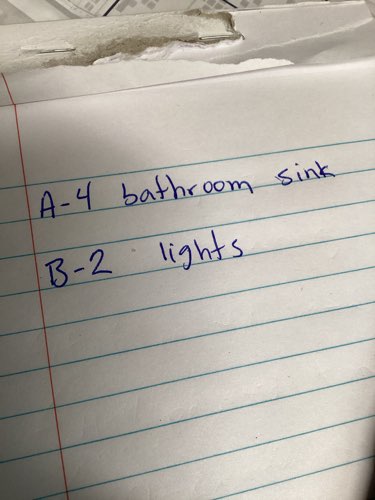 A-4 bathroom sink
B-2 lights